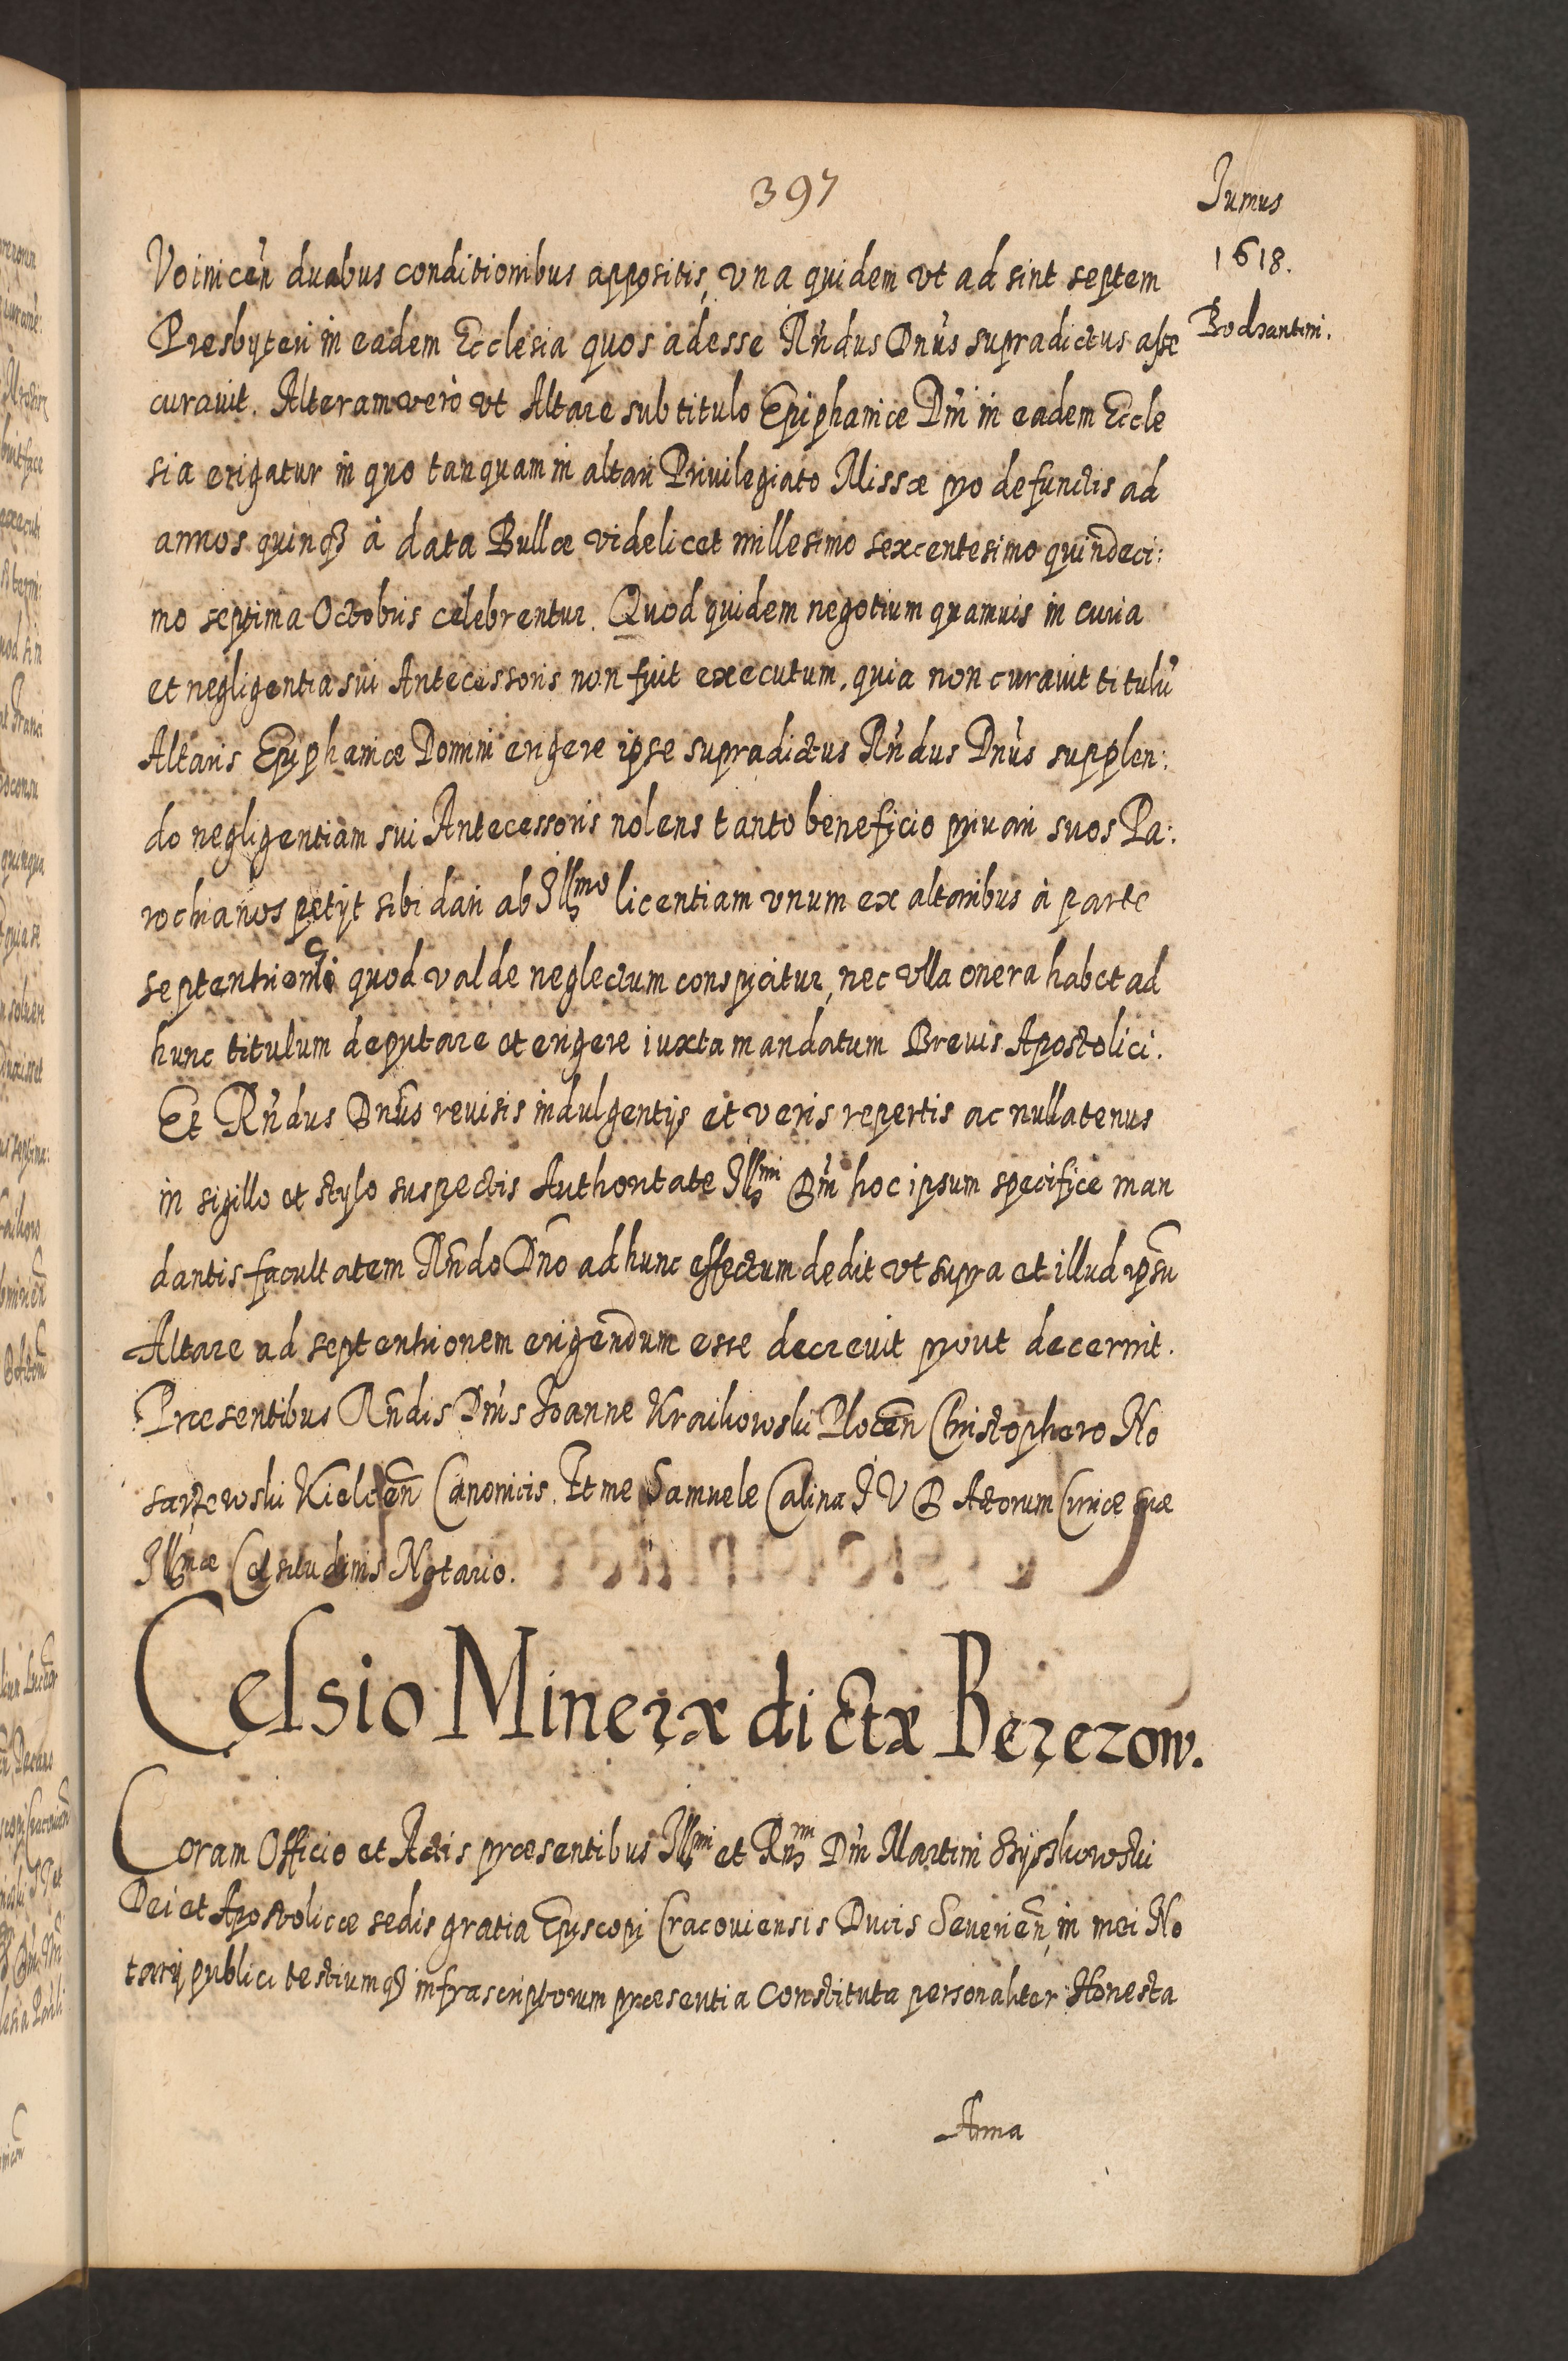 397
Iunius
1618.
Bodzantini.
Voinicen̄ duabus conditionibus appositis, vna quidem vt adsint septem
Presbyteri in eadem Ecclesia quos adesse Rn̄dus Dnūs supradictus asse
curauit. Alteram verò vt Altare sub titulo Epiphaniæ Dn̄i in eadem Eccle
sia erigatur in quo tanquam in altari Priuilegiato Missæ pro defunctis ad
annos quinqꝫ à data Bullæ videlicet millesimo sexcentesimo quindeci:
mo septima Octobris celebrentur. Quod quidem negotium quamuis in curia
et negligentia sui Antecessoris non fuit executum, quia non curauit titulū
Altaris Epiphaniæ Domini erigere ipse supradictus Rn̄dus Dnūs supplen:
do negligentiam sui Antecessoris nolens tanto beneficio priuari suos Pa:
rochianos petijt sibi dari ab Illmo licentiam vnum ex altaribus à parte
septentrionli quod valde neglectum conspicitur, nec vlla onera habet ad
hunc titulum deputare et erigere iuxta mandatum Breuis Apostolici.
Et Rn̄dus Dnūs reuisis indulgentijs et veris repertis ac nullatenus
in sigillo et stylo suspectis Authoritate Illmi Dn̄i hoc ipsum specifice man
dantis facultatem Rn̄do Dn̄o ad hunc effectum dedit vt supra et illud ipsū
Altare ad septentrionem erigendum esse decreuit prout decernit.
Præsentibus Rn̄dis Dn̄is Ioanne Kraikowski Plocen̄ Christophoro No
sarzewski Kielcen̄ Canonicis. Et me Samuele Calina I V D Actorum Curiæ suæ
Illmæ Celsitudinis Notario.
Celsio Mineræ dictæ Berezow.
Coram Officio et Actis præsentibus Illmi et Rn̄mi Dn̄i Martini Szyszkowski
Dei et Apostolicæ sedis gratia Episcopi Cracouiensis Ducis Seuerien̄, in mei No
tarij publici testiumqꝫ infrascriptorum præsentia constituta personaliter Honesta
Anna